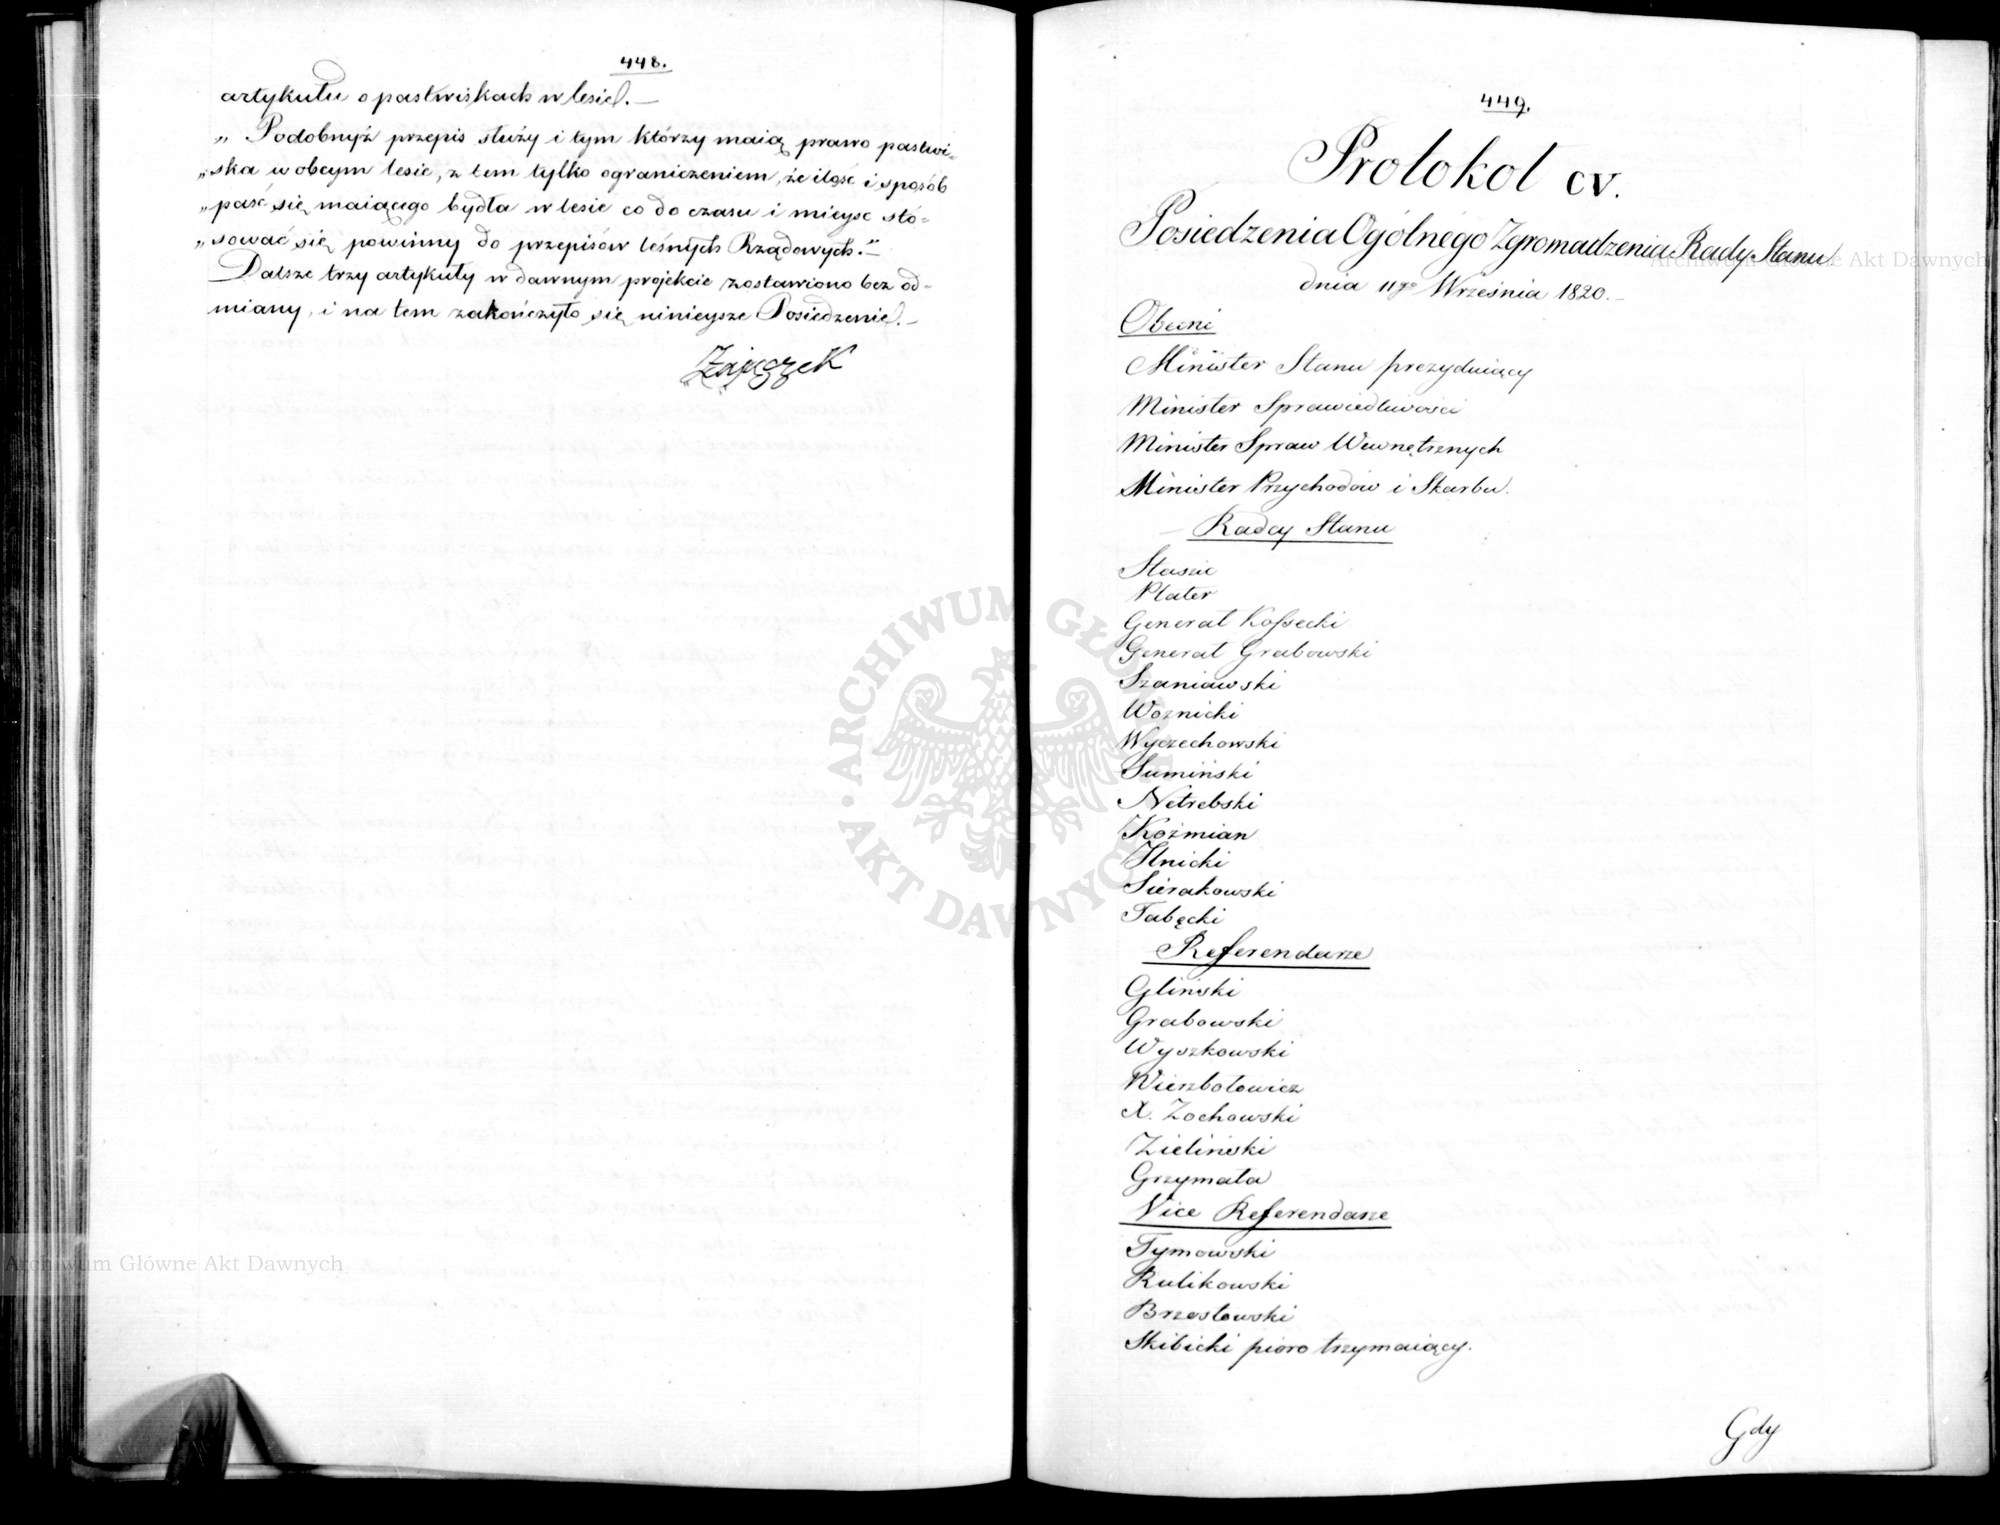 448.
artykułu o pastwiskach w lesie. —
„ Podobnyż przepis służy i tym którzy maią prawo pastwi-
„ ska w obcym lesie, z tem tylko ograniczeniem, że ilość i sposób
„ paść się maiącego bydła w lesie co do czasu i mieysc stó-
„ sować się powinny do przepisów leśnych Rządowych.“ —
Dalsze trzy artykuły w dawnym projekcie zostawiono bez od-
miany, i na tem zakończyło się ninieysze Posiedzenie. —
Zajączek
449.
Protokół CV.
Posiedzenia Ogólnego Zgromadzenia Rady Stanu
dnia 11go Września 1820. —
Obecni
Minister Stanu prezyduiący
Minister Sprawiedliwości
Minister Spraw Wewnętrznych
Minister Przychodów i Skarbu.
Radcy Stanu
Staszic
Plater
Generał Kossecki
Generał Grabowski
Szaniawski
Woznicki
Wyczechowski
Sumiński
Netrebski
Koźmian
Ilnicki
Sierakowski
Tabęcki
Referendarze
Gliński
Grabowski
Wyszkowski
Wierzbołowicz
X. Zochowski
Zieliński
Grzymała
Vice Referendarze
Tymowski
Kulikowski
Brzostowski
Skibicki pioro trzymaiący.
Gdy
ARCHIWUM GŁÓWNE AKT DAWNYCH
Archiwum Główne Akt Dawnych
Archiwum Główne Akt Dawnych